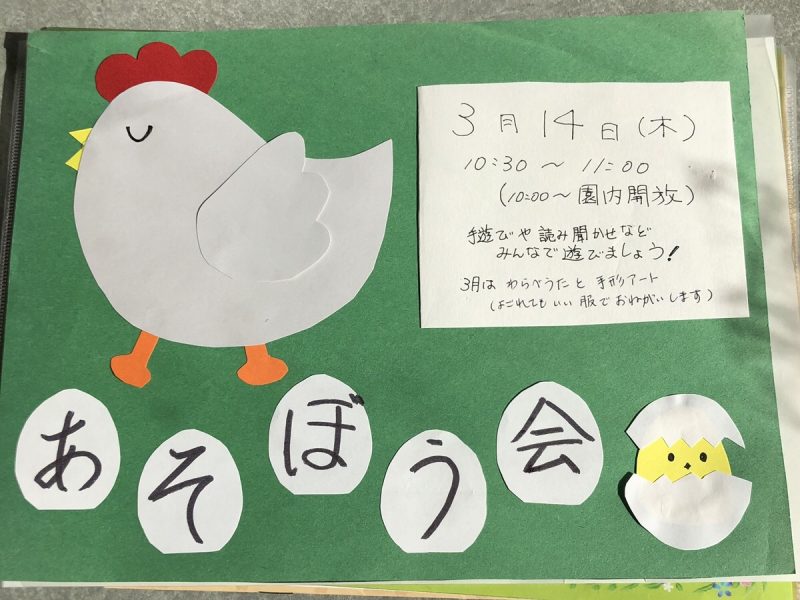 3月14日(木)
10:30 〜 11:00
(10:00〜 園内開放)
手遊びや 読み聞かせなど
みんなで 遊びましょう!
3月は わらべうた と 手形アート
(よごれてもいい 服で おねがいします)
あそぼう会